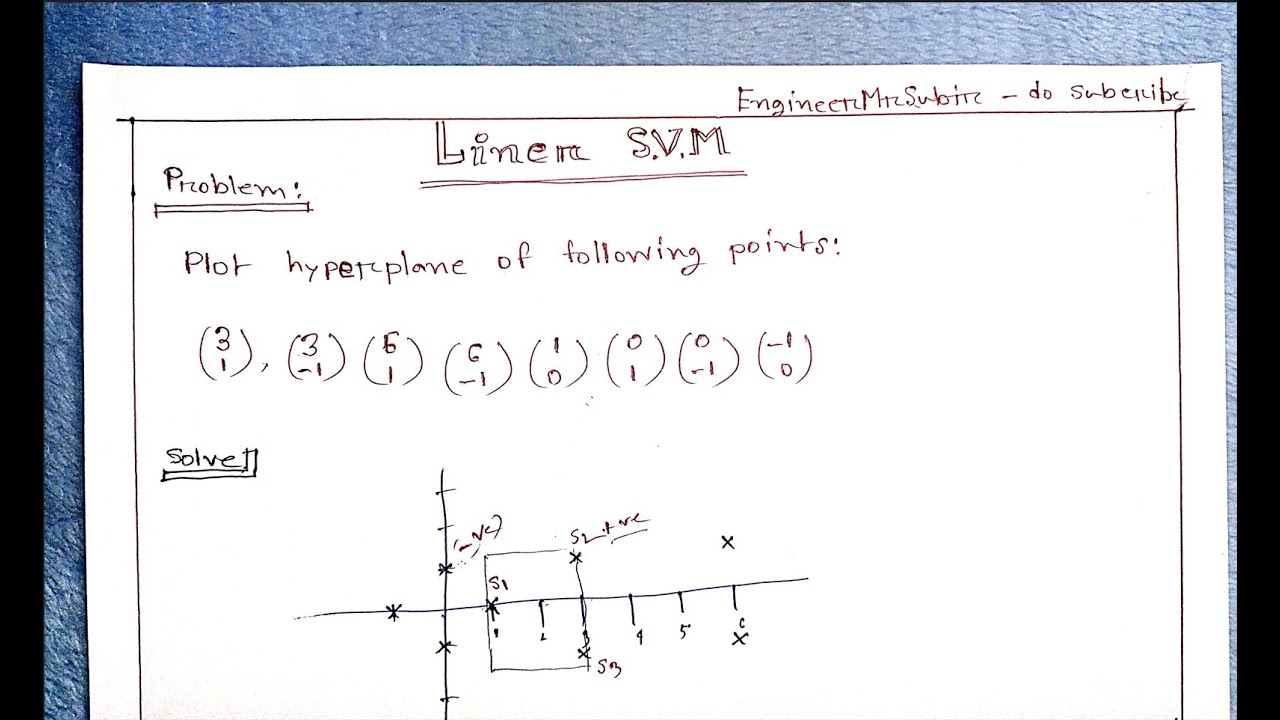 EngineerMrSubir - do subcribe
Liner S.V.M
Problem:
Plot hyperplane of following points:
(3 1), (3 -1) (6 1) (6 -1) (1 0) (0 1) (0 -1) (-1 0)
Solve
(-ve) S2 +ve
S1
1 2 3 4 5 6
S3